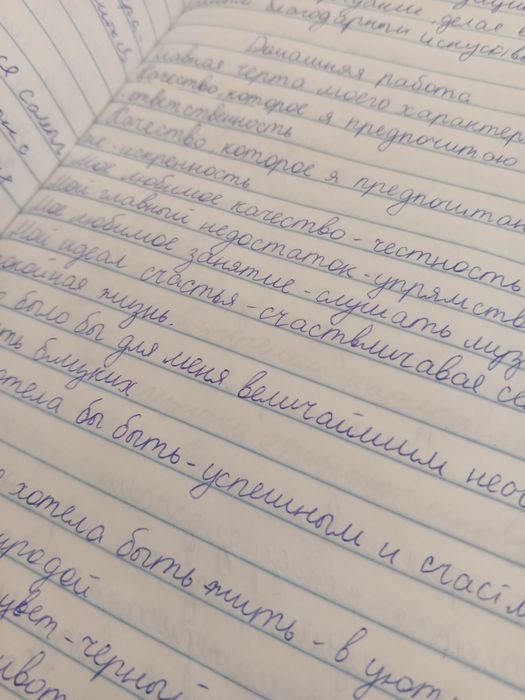 делае
благодарным искусств
Домашняя работа
главная черта моего характер
Качество, которое я предпочитаю
ответственность
Качество, которое я предпочитаю
не - искренность
Мое любимое качество - честность
Мой главный недостаток - упрямств
Мое любимое занятие - слушать муз
Мой идеал счастья - счастличавая се
окойная жизнь.
о было бы для меня величайшим несч
ть близких
отела бы быть - успешным и счаст
е хотела быть жить - в уют
иродой
цвет - черный
ивот